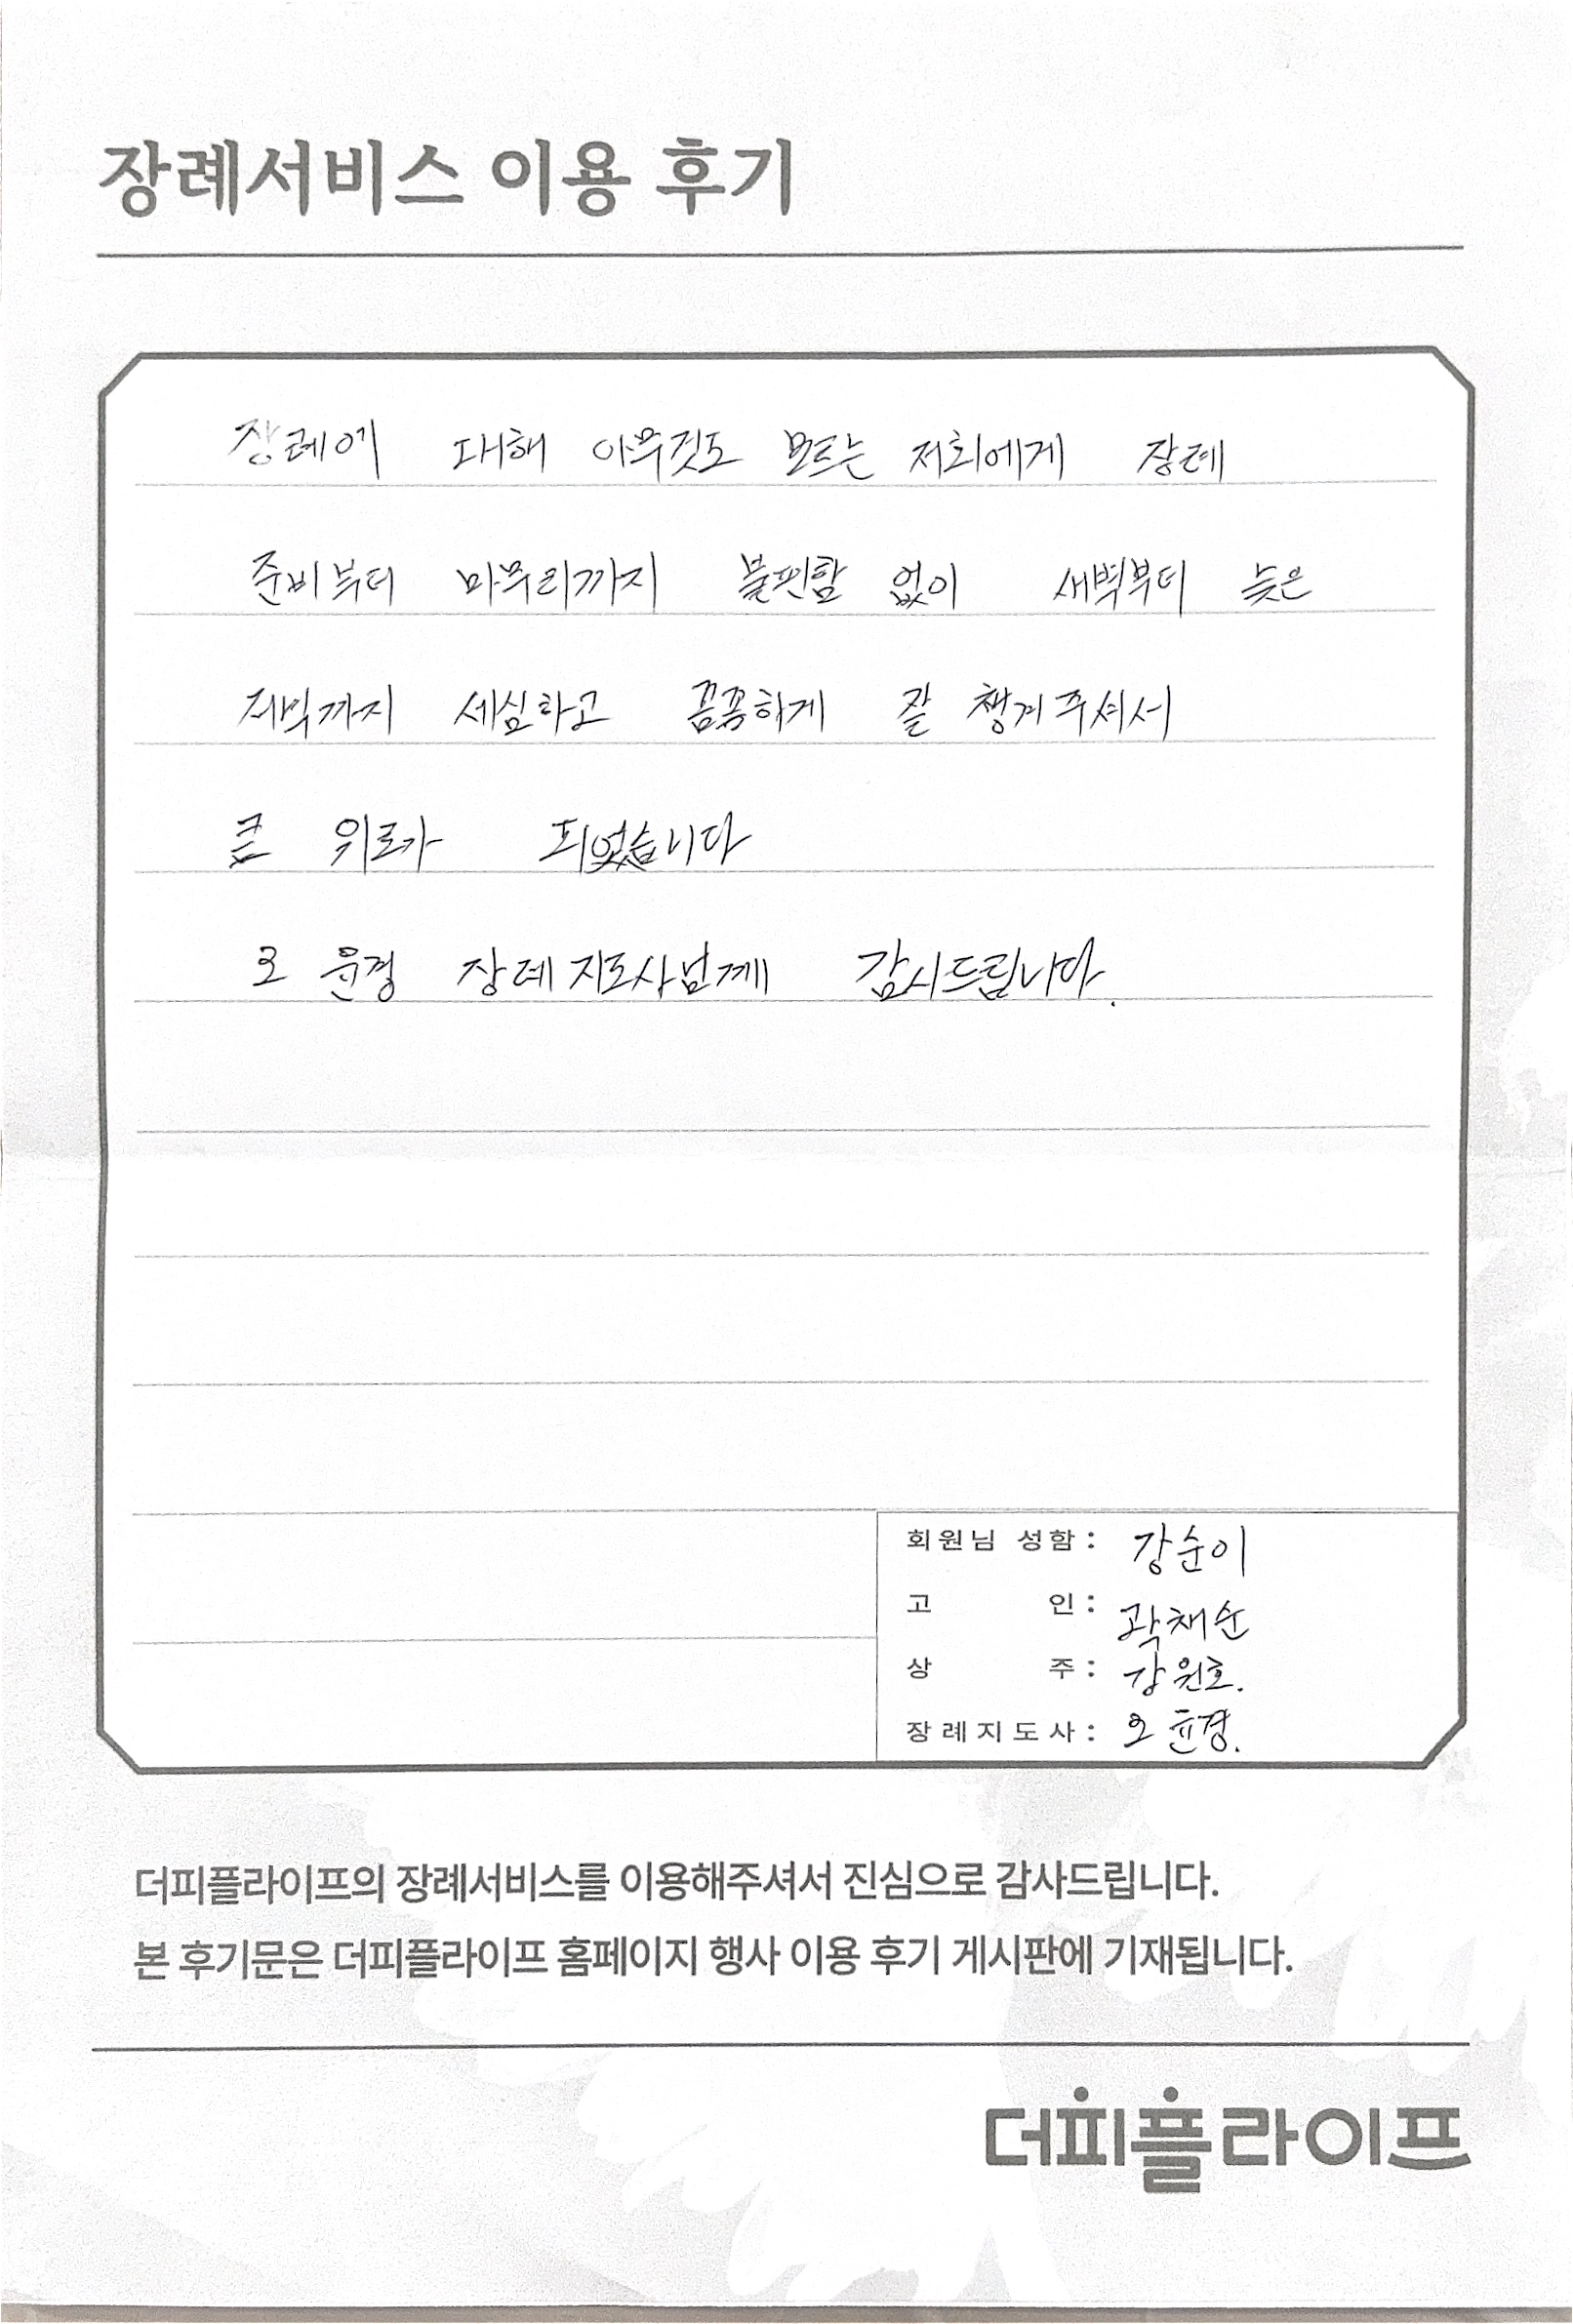 장례서비스 이용 후기
장례에 대해 아무것도 모르는 저희에게 장례
준비부터 마무리까지 불편함 없이 새벽부터 늦은
저녁까지 세심하고 꼼꼼하게 잘 챙겨주셔서
큰 위로가 되었습니다
오 윤경 장례지도사님께 감사드립니다.
회원님 성함 : 강순이
고 인 : 곽채순
상 주 : 강원호.
장례지도사 : 오 윤경.
더피플라이프의 장례서비스를 이용해주셔서 진심으로 감사드립니다.
본 후기문은 더피플라이프 홈페이지 행사 이용 후기 게시판에 기재됩니다.
더피플라이프